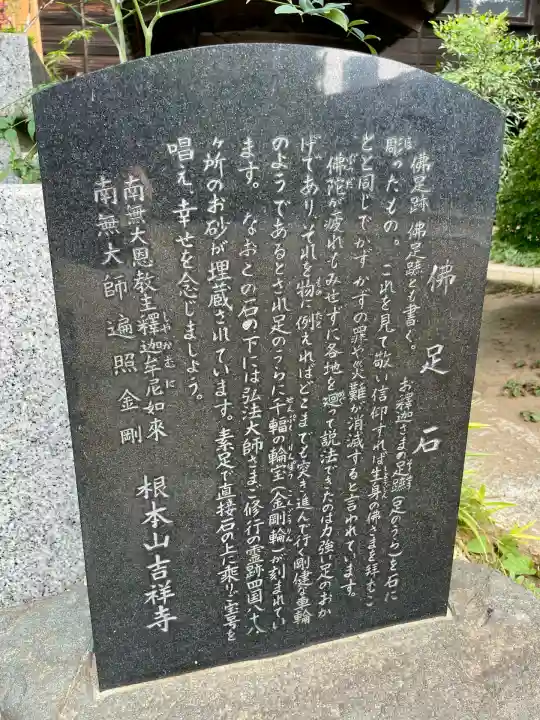 佛足石
佛足跡 佛足蹟とも書く。お釋迦さまの足蹟(足のうら)を石に
彫ったもの。これを見て敬い信仰すれば生身の佛さまを拝むこ
とと同じでかずかずの罪や災難が消滅すると言われています。
佛陀が疲れもみせずに各地を廻って説法できたのは力強い足のおか
げであり、それを物に例えればどこまでも突き進んで行く剛健な車輪
のようであるとされ足のうらに千輻の輪宝(金剛輪)が刻まれてい
ます。なおこの石の下には弘法大師さまご修行の霊跡四国八十八
ヶ所のお砂が埋蔵されています。素足で直接石の上に乗りご宝号を
唱え、幸せを念じましょう。
南無大恩教主釋迦牟尼如来
南無大師遍照金剛
根本山吉祥寺